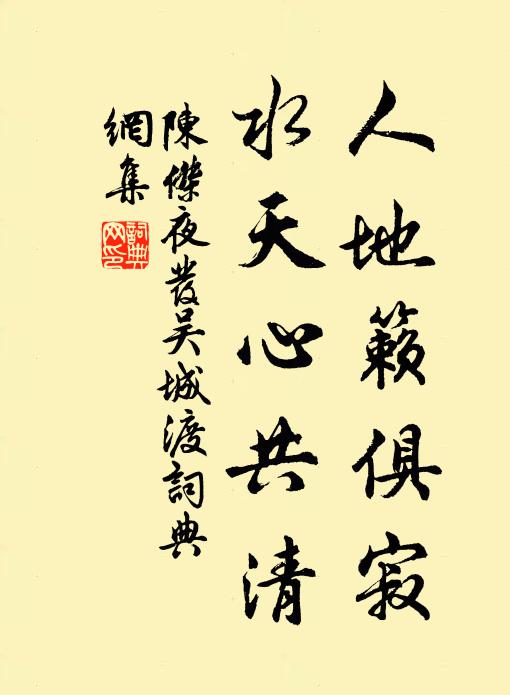 人地籟俱寂
水天心共清
陳傑夜發吳城渡詞典
網集
詞典
网印